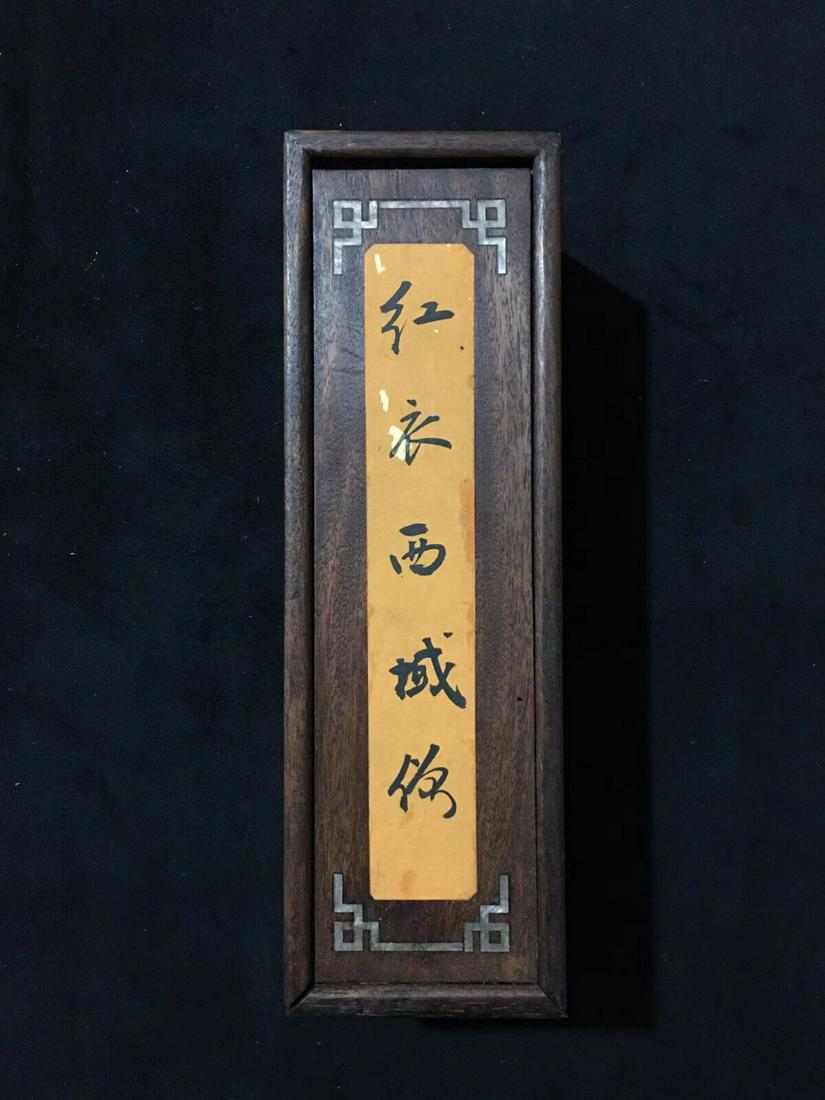 红衣西域僧